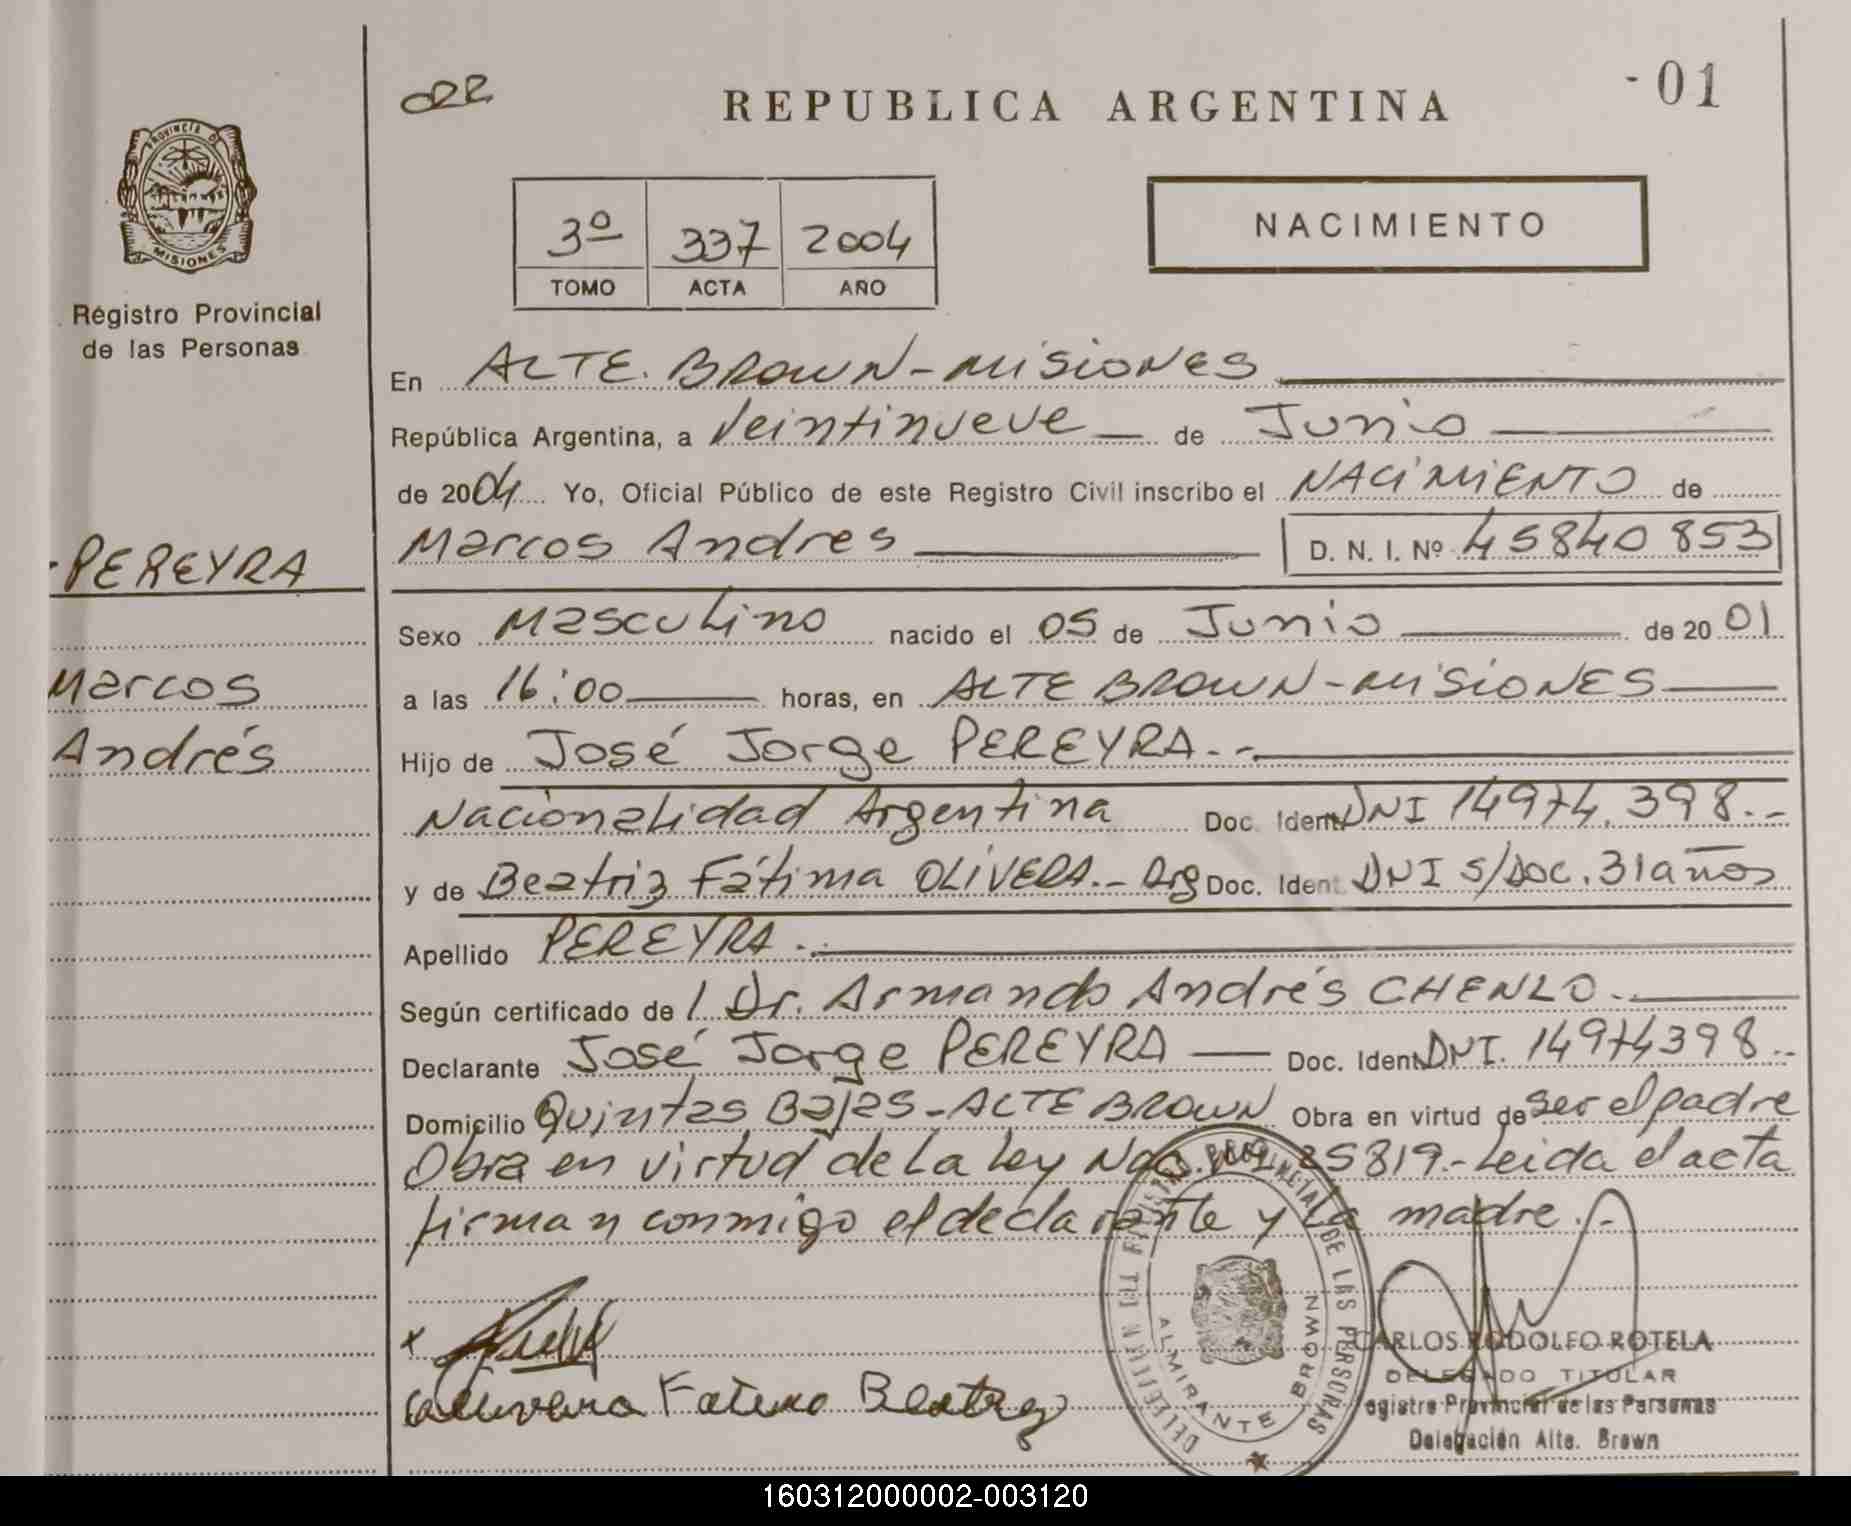 022
REPUBLICA ARGENTINA
- 01
PROVINCIA DE
MISIONES
Registro Provincial
de las Personas
3º 337 2004
TOMO ACTA AÑO
NACIMIENTO
En ALTE. BROWN-MISIONES
República Argentina, a Veintinueve — de Junio
de 2004 Yo, Oficial Público de este Registro Civil inscribo el NACIMIENTO de
Marcos Andres D. N. I. Nº 45840853
PEREYRA
Marcos
Andrés
Sexo Masculino nacido el 05 de Junio de 2001
a las 16:00 horas, en ALTE BROWN-MISIONES
Hijo de José Jorge PEREYRA.-
Nacionalidad Argentina Doc. Ident. DNI 14974.398.-
y de Beatriz Fátima OLIVERA.- Arg Doc. Ident. DNI S/Doc. 31 años
Apellido PEREYRA.-
Según certificado de / Dr. Armando Andrés CHENLO.-
Declarante José Jorge PEREYRA — Doc. Ident. DNI. 14974398.-
Domicilio Quintas Bajas-ALTE BROWN Obra en virtud de ser el padre
Obra en virtud de la ley Nac. 25819.- Leida el acta
firman conmigo el declarante y la madre.-
x
Fatima Beatriz
REGISTRO PROVINCIAL DE LAS PERSONAS
ALMIRANTE BROWN
CARLOS RODOLFO ROTELA
DELEGADO TITULAR
Registro Provincial de las Personas
Delegación Alte. Brown
160312000002-003120